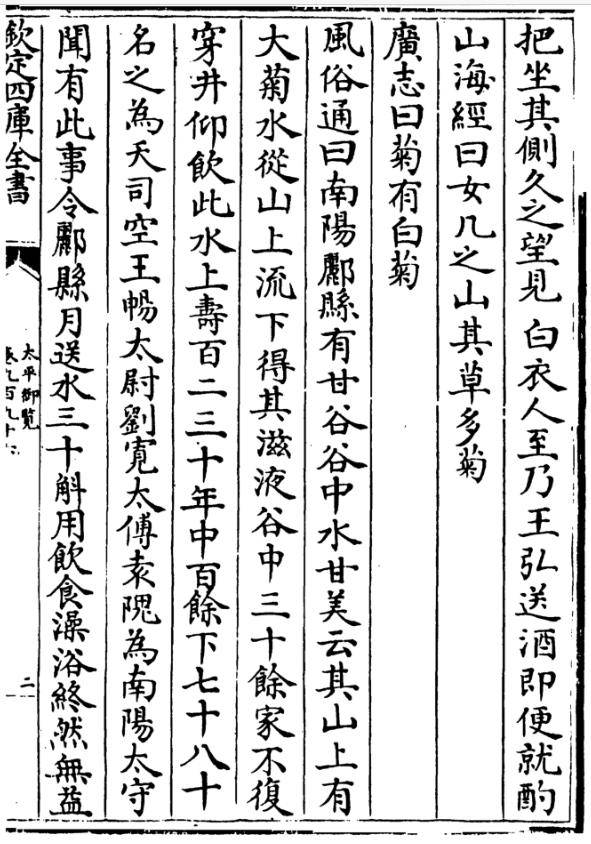 把坐其側久之望見白衣人至乃王弘送酒即便就酌
山海經曰女几之山其草多菊
廣志曰菊有白菊
風俗通曰南陽酈縣有甘谷谷中水甘美云其山上有
大菊水從山上流下得其滋液谷中三十餘家不復
穿井仰飲此水上壽百二三十年中百餘下七十八十
名之為夭司空王暢太尉劉寛太傅袁隗為南陽太守
聞有此事令酈縣月送水三十斛用飲食澡浴終然無益
欽定四庫全書
太平御覽
卷九百九十六
二